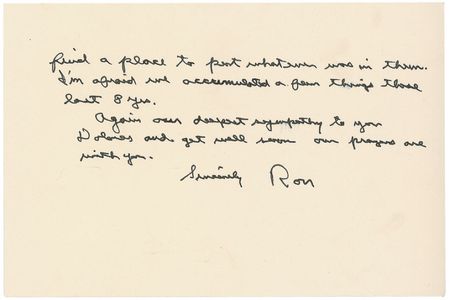 find a place to put whatever was in them.
I'm afraid we accumulated a few things those
last 8 yrs.
Again our deepest sympathy to you
Dolores and get well soon our prayers are
with you.
Sincerely Ron